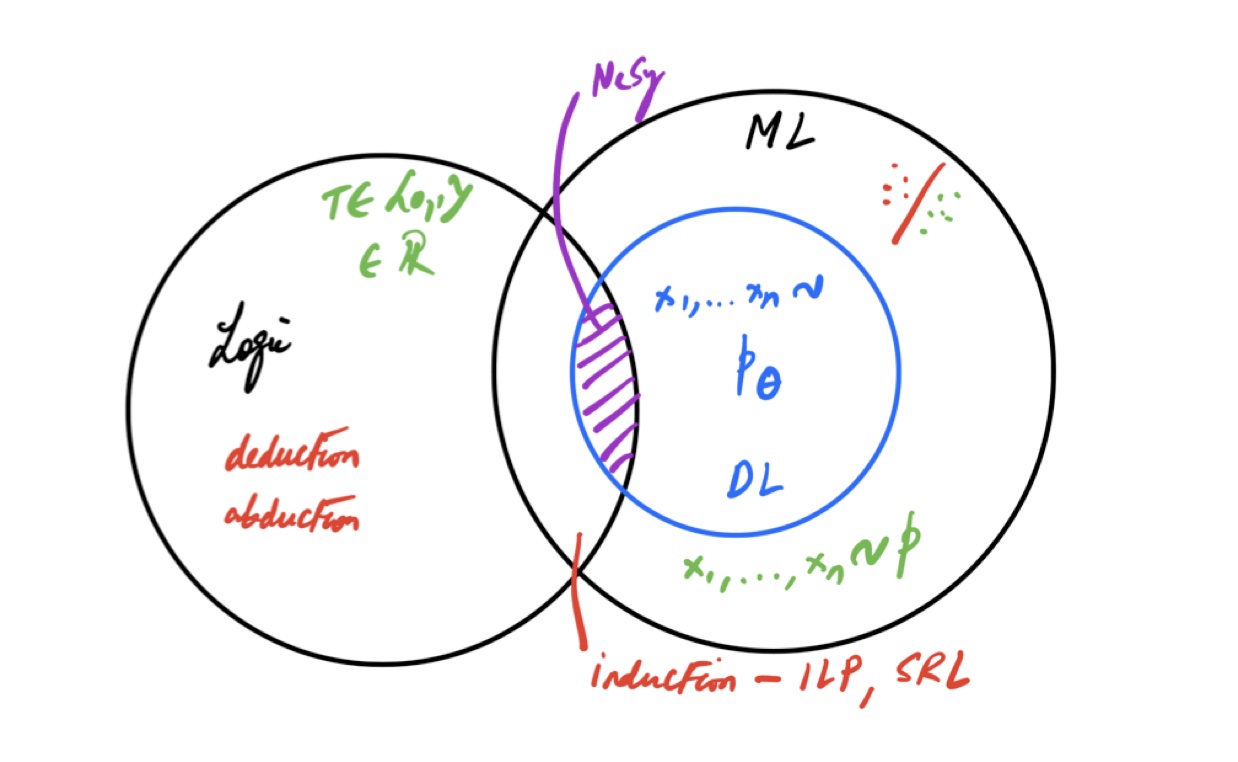 NeSy
ML
T ∈ {0,1}
∈ ℝ
Logic
deduction
abduction
x₁, ... xₙ ~
pθ
DL
x₁, ..., xₙ ~ p
induction – ILP, SRL